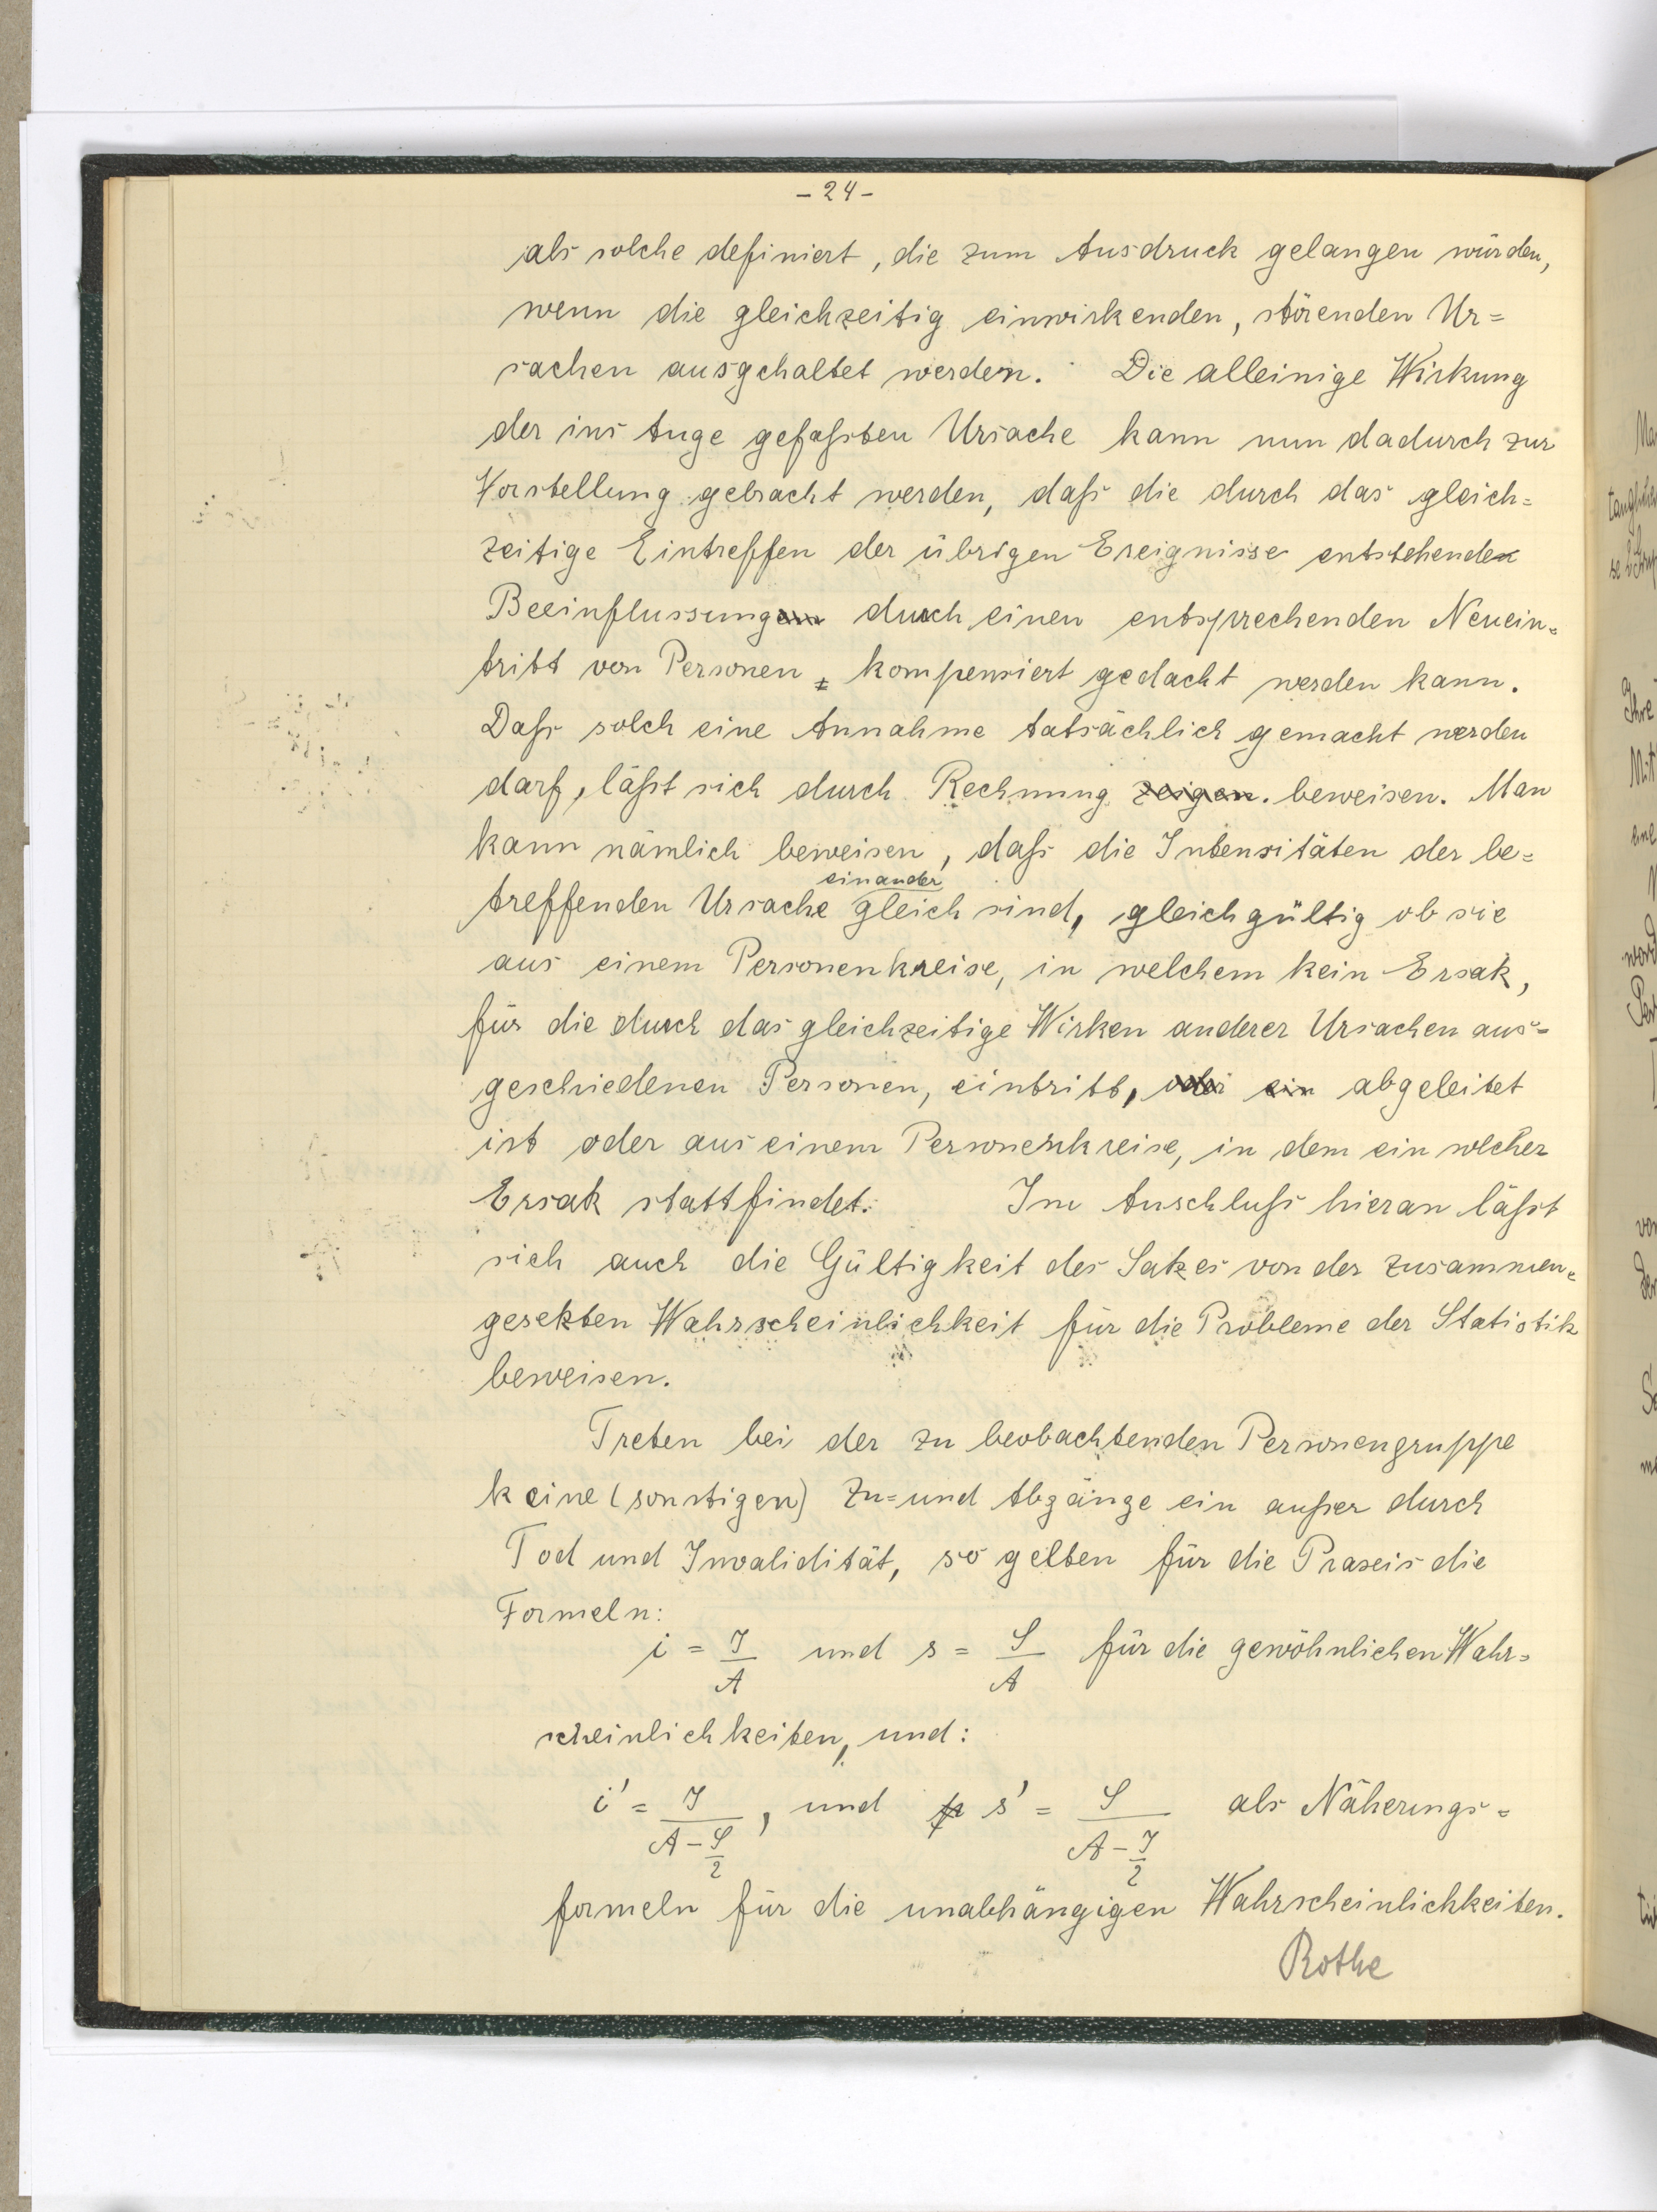 - 24 -
als solche definiert, die zum Ausdruck gelangen würden,
wenn die gleichzeitig einwirkenden, störenden Ur=
sachen ausgehaltet werden. Die alleinige Wirkung
der ins Auge gefaßten Ursache kann nun dadurch zur
Vorstellung gebracht werden, daß die durch das gleich=
zeitige Eintreffen der übrigen Ereignisse entstehenden
Beeinflussungen durch einen entsprechenden Neuein=
tritt von Personen, kompensiert gedacht werden kann.
Daß solch eine Annahme tatsächlich gemacht werden
darf, läßt sich durch Rechnung zeigen. beweisen. Man
kann nämlich beweisen, daß die Intensitäten der be=
einander
treffenden Ursache gleich sind, gleichgültig ob sie
aus einem Personenkreise, in welchem kein Ersatz,
für die durch das gleichzeitige Wirken anderer Ursachen aus=
geschiedenen Personen, eintritt, oder ein abgeleitet
ist oder aus einem Personenkreise, in dem ein solcher
Ersatz stattfindet. Im Anschluß hieran läßt
sich auch die Gültigkeit des Satzes von der zusammen=
gesetzten Wahrscheinlichkeit für die Probleme der Statistik
beweisen.
Treten bei der zu beobachtenden Personengruppe
keine (sonstigen) Zu= und Abgänge ein außer durch
Tod und Invalidität, so gelten für die Praxis die
Formeln:
i = J/A und s = S/A für die gewöhnlichen Wahr=
scheinlichkeiten, und:
i' = J/(A - S/2), und s' = S/(A - J/2) als Näherungs=
formeln für die unabhängigen Wahrscheinlichkeiten.
Rothe